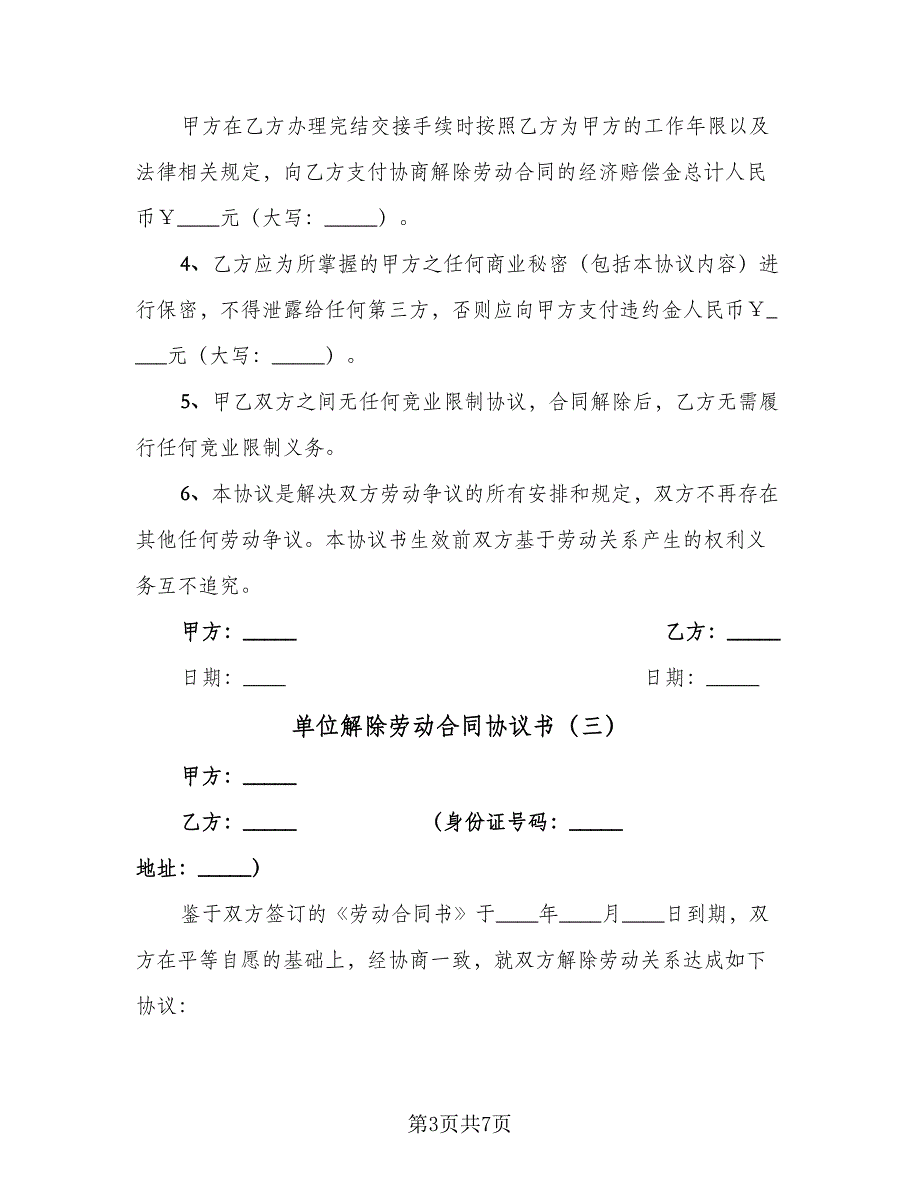 甲方在乙方办理完结交接手续时按照乙方为甲方的工作年限以及
法律相关规定，向乙方支付协商解除劳动合同的经济赔偿金总计人民
币￥____元（大写：_____）。
4、乙方应为所掌握的甲方之任何商业秘密（包括本协议内容）进
行保密，不得泄露给任何第三方，否则应向甲方支付违约金人民币￥_
___元（大写：_____）。
5、甲乙双方之间无任何竞业限制协议，合同解除后，乙方无需履
行任何竞业限制义务。
6、本协议是解决双方劳动争议的所有安排和规定，双方不再存在
其他任何劳动争议。本协议书生效前双方基于劳动关系产生的权利义
务互不追究。
甲方：_____ 乙方：_____
日期：____ 日期：_____
单位解除劳动合同协议书（三）
甲方：_____
乙方：_____ （身份证号码：_____
地址：_____）
鉴于双方签订的《劳动合同书》于____年____月____日到期，双
方在平等自愿的基础上，经协商一致，就双方解除劳动关系达成如下
协议：
第3页共7页